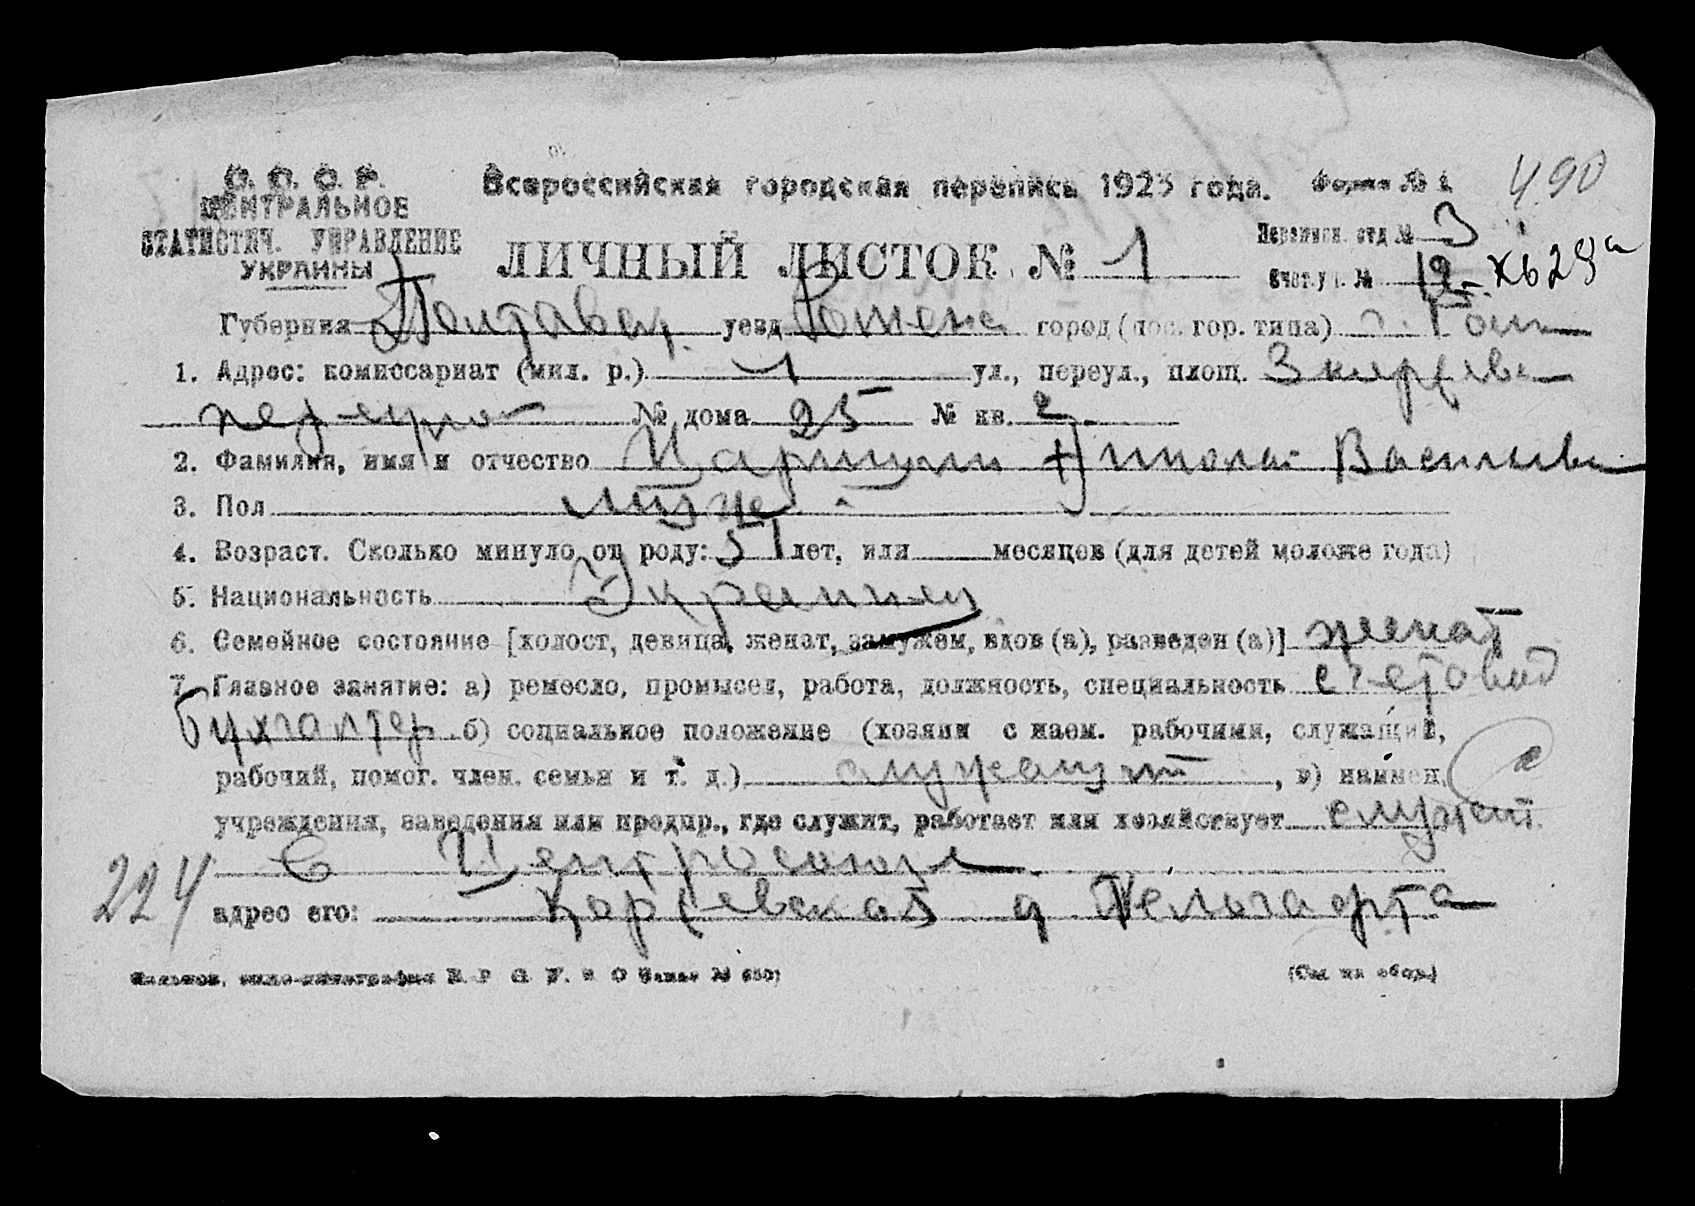 С. С. С. Р.
ЦЕНТРАЛЬНОЕ
СТАТИСТИЧ. УПРАВЛЕНИЕ
УКРАИНЫ
Всероссийская городская перепись 1923 года.
Форма № 1
490
ЛИЧНЫЙ ЛИСТОК № 1
Переписн. отд № 3
Счет. уч. №
Губерния Полтавск. уезд Роменск город (пос. гор. типа) г.
1. Адрес: комиссариат (мил. р.) 1 ул., переул., площ.
№ дома 25 № кв. 2
2. Фамилия, имя и отчество Николай Васильев
3. Пол муж
4. Возраст. Сколько минуло от роду: 51 лет, или месяцев (для детей моложе года)
5. Национальность Украинец
6. Семейное состояние [холост, девица, женат, замужем, вдов (а), разведен (а)] женат
7. Главное занятие: а) ремесло, промысел, работа, должность, специальность счетовод
бухгалтер б) социальное положение (хозяин с наем. рабочими, служащий,
рабочий, помог. член. семьи и т. д.) служащий, в) наимен.
учреждения, заведения или предпр., где служит, работает или хозяйствует служит
в Центросоюзе
224
адрес его:
(См на обор.)